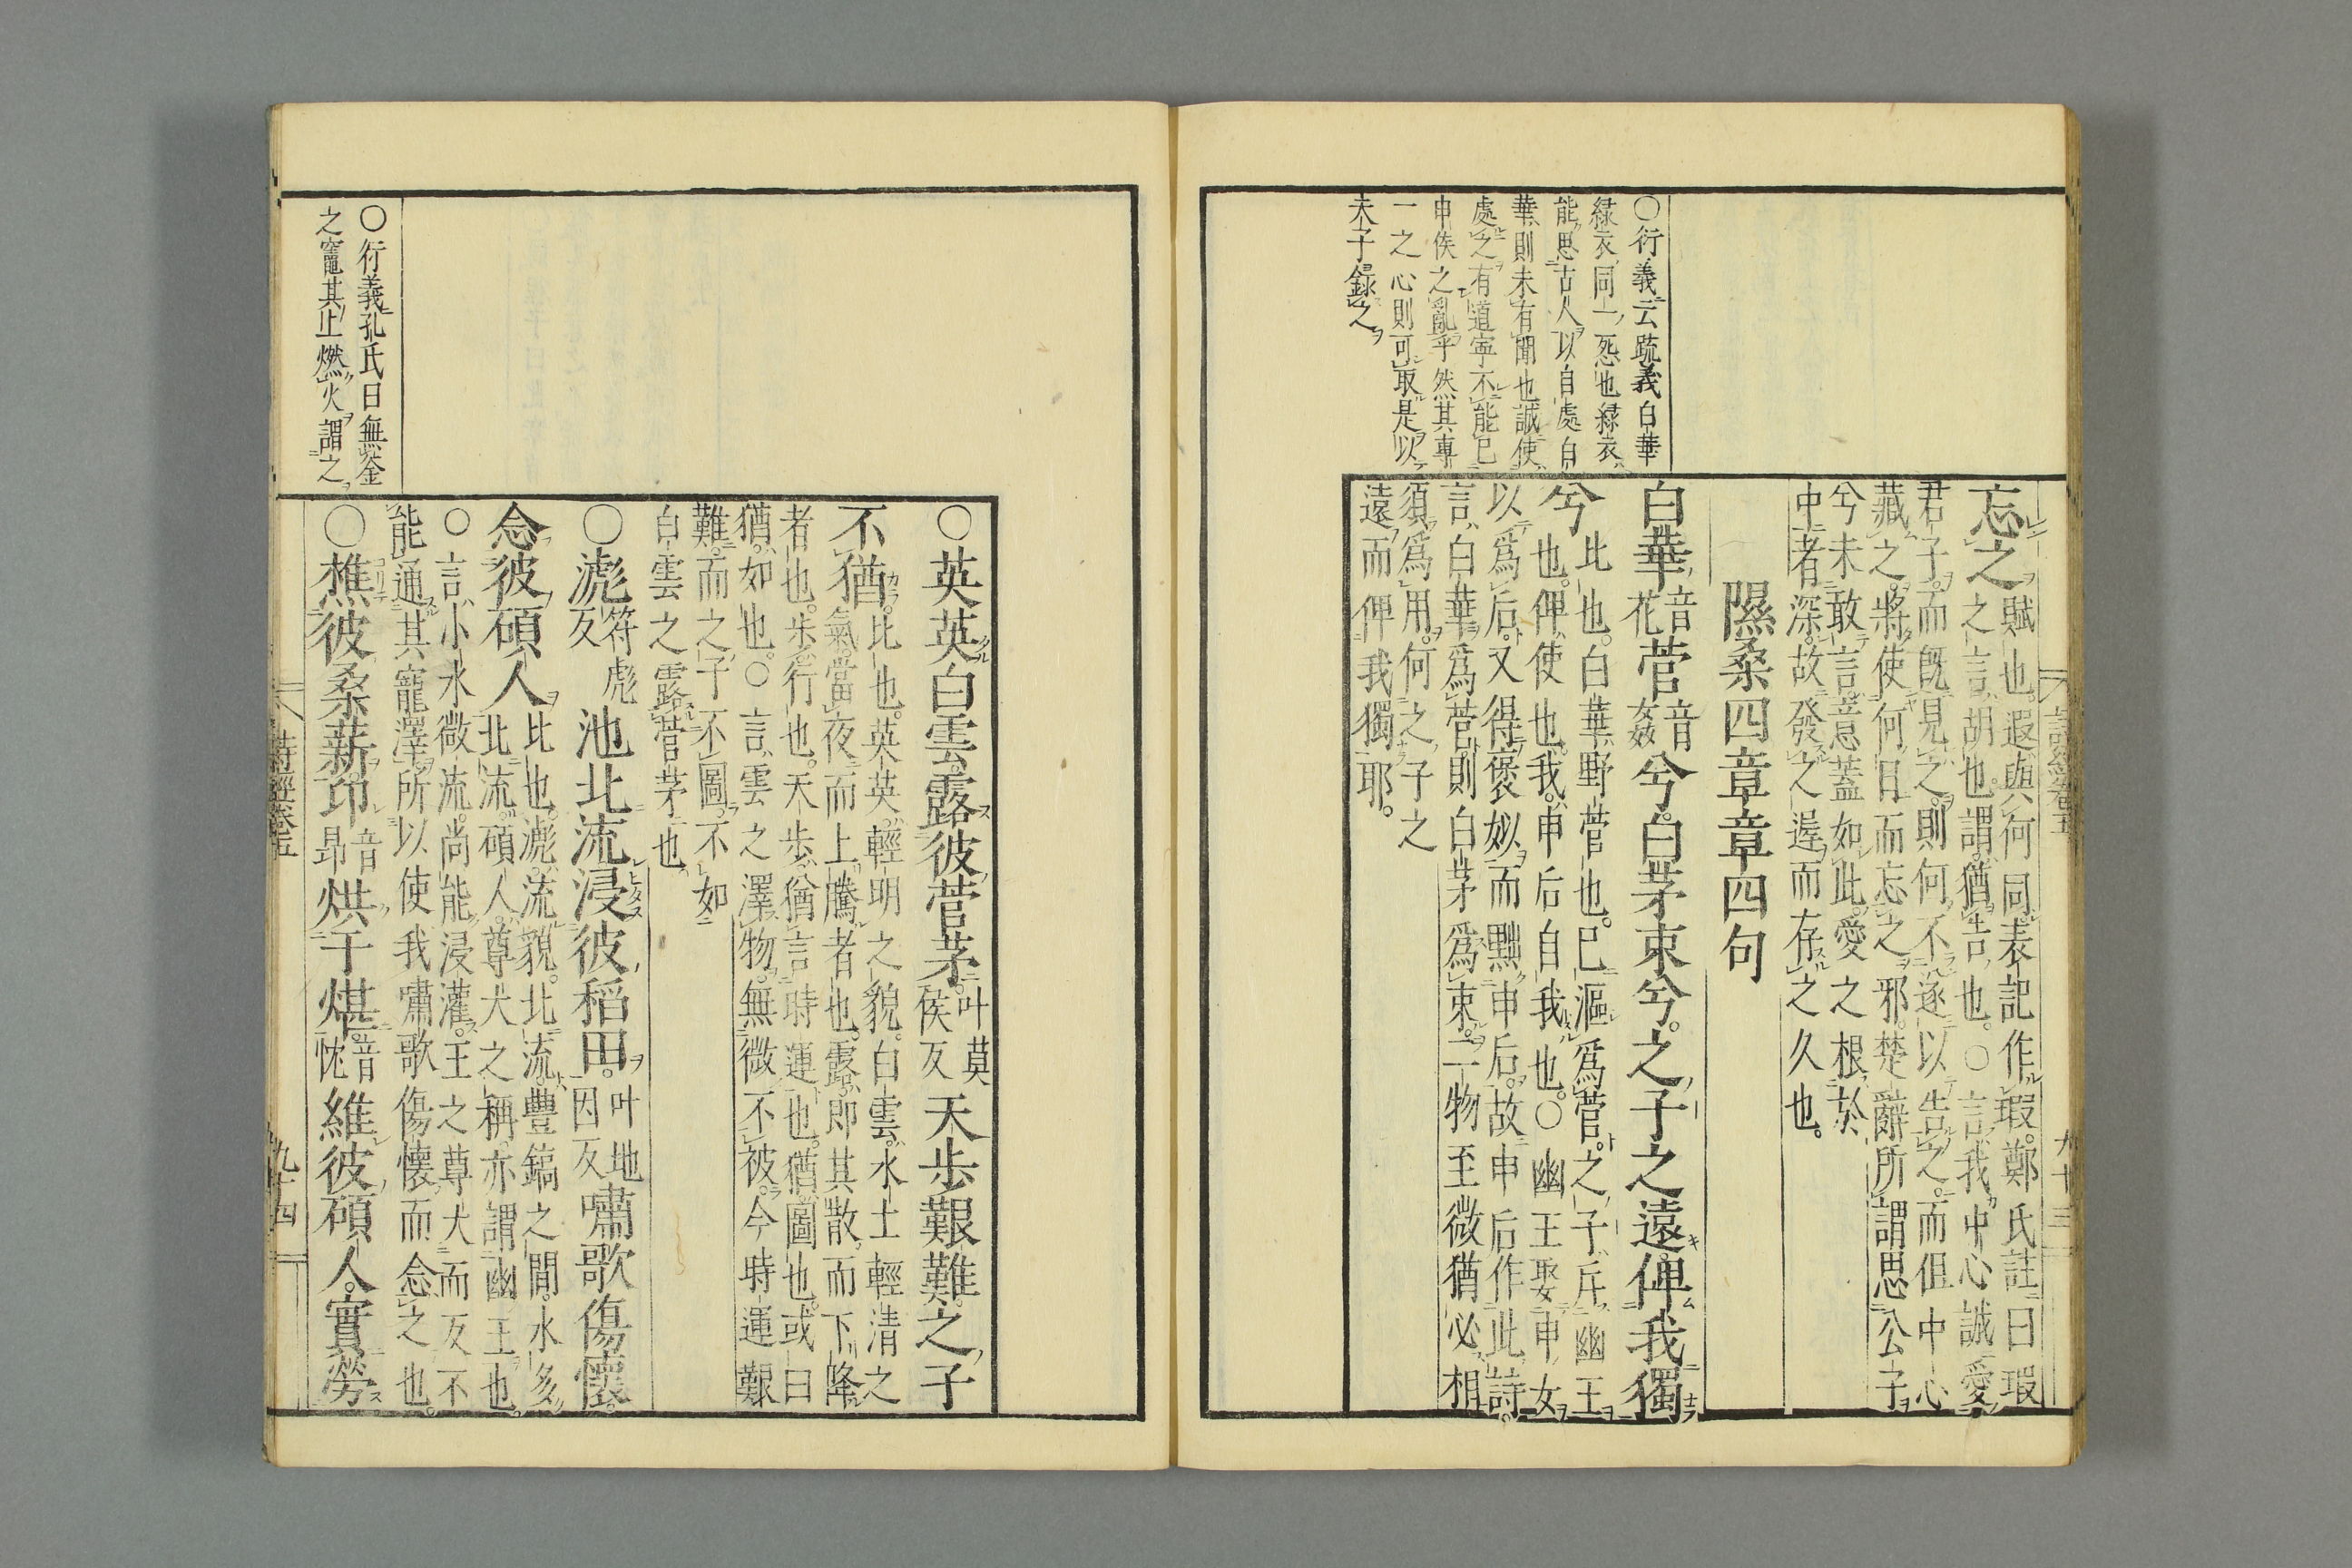 忘之賦也遐與何同表記作瑕鄭氏註曰瑕
之言胡也謂猶告也○言我中心誠愛
君子而旣見之則何不遂以告之而但中心
藏之將使何日而忘之邪楚辭所謂思公子
兮未敢言意蓋如此愛之根於
中者深故發之遲而存之久也
隰桑四章章四句
白華音花菅音姦兮白茅束兮之子之遠俾我獨
兮比也白華野菅也已漚爲菅之子斥幽王
也俾使也我申后自我也○幽王娶申女
以爲后又得褒姒而黜申后故申后作此詩
言白華爲菅則白茅爲束二物至微猶必相
須爲用何之子之
遠而俾我獨耶
○衍義云疏義白華
綠衣同一怨也綠衣
能思古人以自處白
華則未有聞也誠使
處之有道寧不能已
申侯之亂乎然其專
一之心則可取是以
夫子錄之
詩經卷五
九十三
○英英白雲露彼菅茅叶莫侯反天步艱難之子
不猶比也英英輕明之貌白雲水土輕清之
氣當夜而上騰者也露即其散而下降
者也步行也天步猶言時運也猶圖也或曰
猶如也○言雲之澤物無微不被今時運艱
難而之子不圖不如
白雲之露菅茅也
○滮符彪反池北流浸彼稻田叶地因反嘯歌傷懷
念彼碩人比也滮流貌北流豐鎬之閒水多
北流碩人尊大之稱亦謂幽王也
○言小水微流尚能浸灌王之尊大而反不
能通其寵澤所以使我嘯歌傷懷而念之也
○樵彼桑薪卬音昂烘于煁音忱維彼碩人實勞
○衍義孔氏曰無釜
之竈其止燃火謂之
詩經卷五
九十四